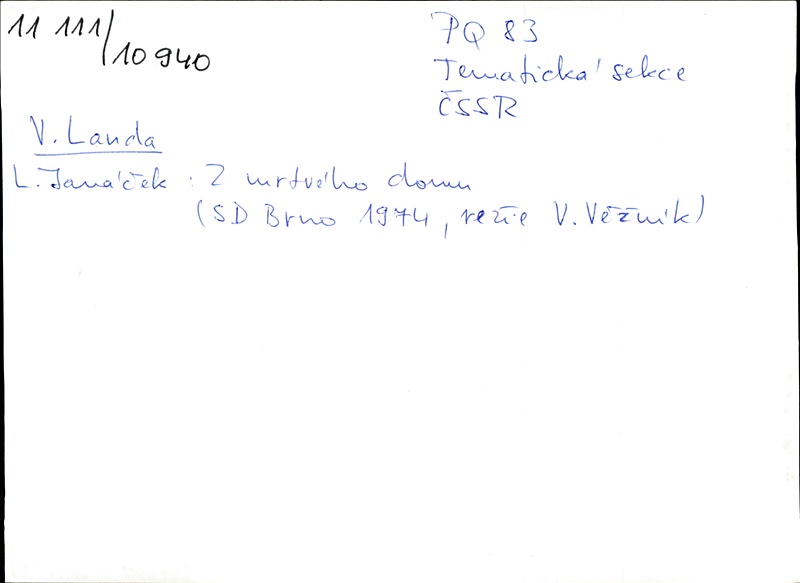 11 111/10 940
PQ 83
Tematická sekce
ČSSR
V. Landa
L. Janáček : Z mrtvého domu
(SD Brno 1974, režie V. Věžník)